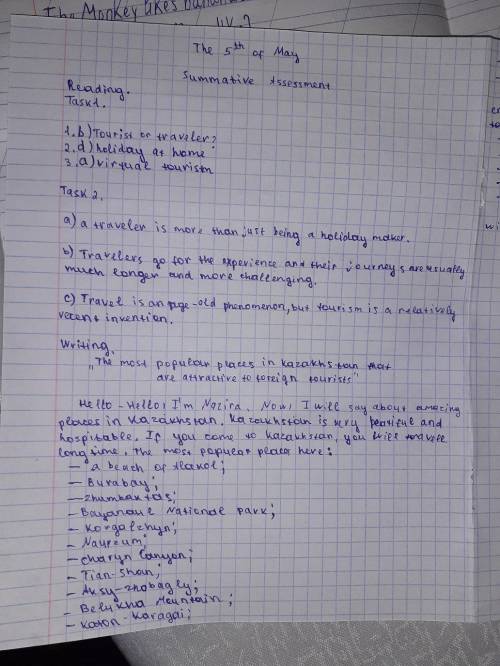 The Monkey likes
The 5th of May
Summative Assessment
Reading.
Task1.
1. b) Tourist or traveler?
2. d) holiday at home
3. a) virtual tourism
Task 2.
a) a traveler is more than just being a holiday maker.
b) Travelers go for the experience and their journeys are usually
much longer and more challenging.
c) Travel is an age-old phenomenon, but tourism is a relatively
recent invention.
Writing.
„The most popular places in Kazakhstan that
are attractive to foreign tourists"
Hello-Hello, I'm Nazira. Now, I will say about amazing
places in Kazakhstan. Kazakhstan is very beatiful and
hospitable. If you come to Kazakhstan, you will travell
long time. The most popular place here:
- a beach of Alakol;
- Burabay;
- Zhumbaktas;
- Bayanaul National park;
- Korgalzhyn;
- Naurzum;
- Charyn Canyon;
- Tian-Shan;
- Aksy-Zhabagly;
- Belukha Mountain;
- Katon-Karagai;